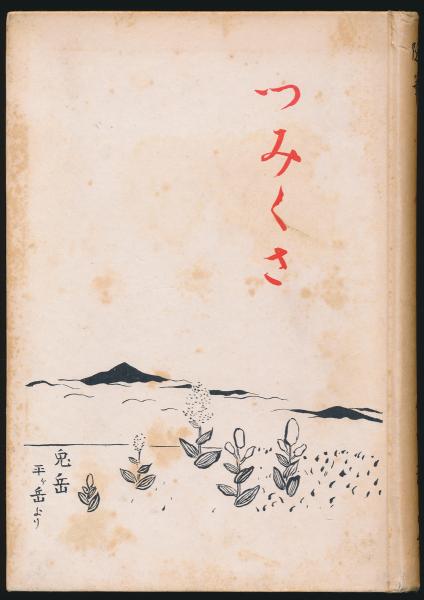 つみくさ
兎岳
平ヶ岳より